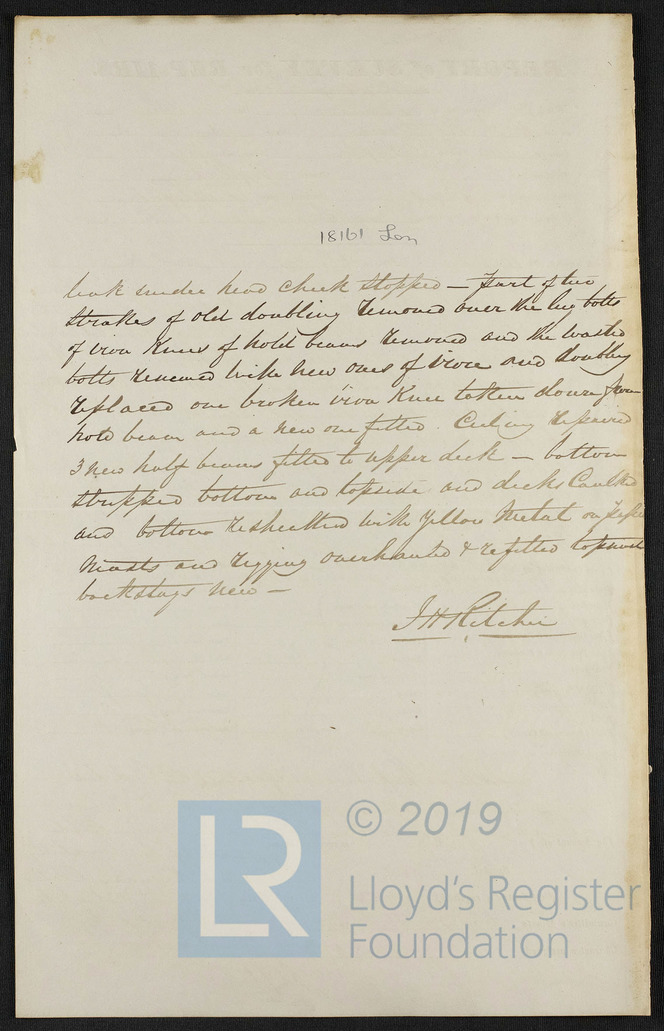 18161 Lon
leak under head cheek stopped — Part of two
strakes of old doubling removed over the lug bolts
of iron Knees of hold beams removed and the wasted
bolts renewed with new ones of iron and doubling
replaced one broken iron Knee taken down from
hold beam and a new one fitted. Ceiling repaired
3 new half beams fitted to upper deck — bottom
stripped bottom and topside and decks Caulked
and bottom resheathed with Yellow Metal on
Masts and rigging overhauled & refitted topmast
backstays new —
J H Ritchie
LR
© 2019
Lloyd's Register
Foundation